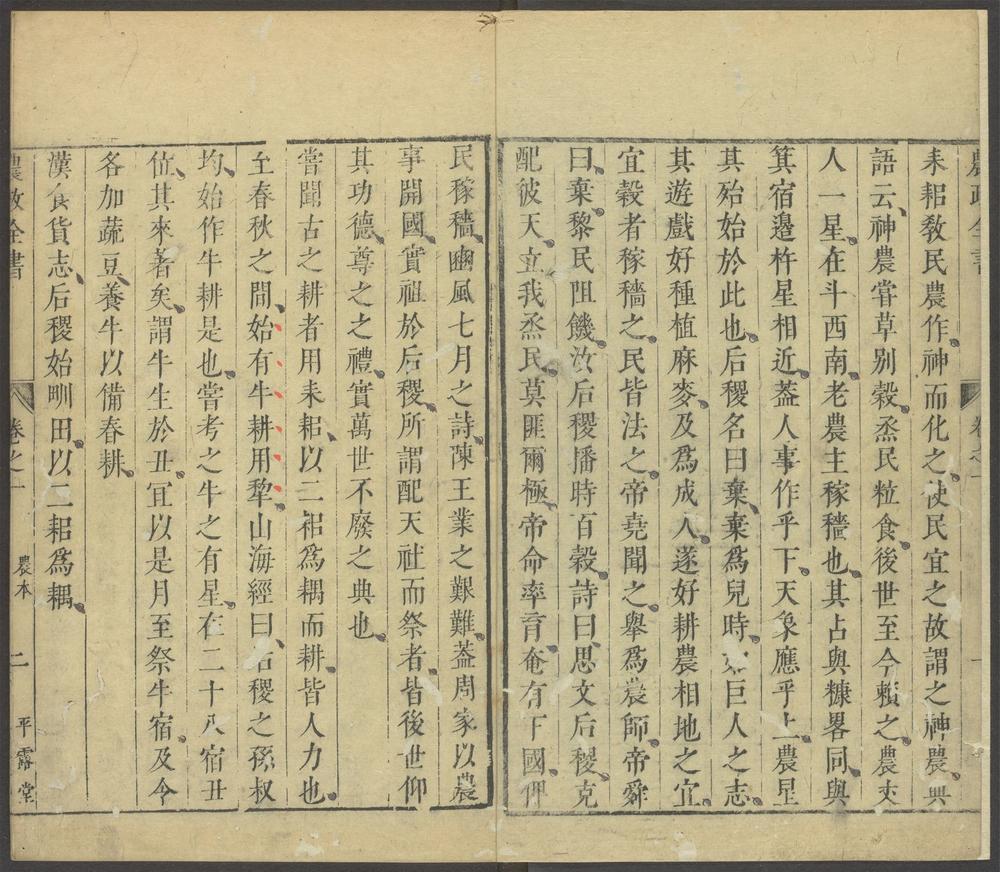 農政全書 卷之一
耒耜敎民農作神而化之使民宜之故謂之神農典
語云神農嘗草别穀烝民粒食後世至今賴之農丈
人一星在斗西南老農主稼穡也其占與糠畧同與
箕宿邉杵星相近葢人事作乎下天象應乎上農星
其殆始於此也后稷名曰棄棄爲兒時如巨人之志
其遊戲好種植麻麥及爲成人遂好耕農相地之宜
宜穀者稼穡之民皆法之帝堯聞之舉爲農師帝舜
曰棄黎民阻饑汝后稷播時百穀詩曰思文后稷克
配彼天立我烝民莫匪爾極帝命率育奄有下國俾
民稼穡豳風七月之詩陳王業之艱難葢周家以農
事開國實祖於后稷所謂配天社而祭者皆後世仰
其功德尊之之禮實萬世不廢之典也
嘗聞古之耕者用耒耜以二耜爲耦而耕皆人力也
至春秋之間始有牛耕用犂山海經曰后稷之孫叔
均始作牛耕是也嘗考之牛之有星在二十八宿丑
位其來著矣謂牛生於丑宜以是月至祭牛宿及今
各加蔬豆養牛以備春耕
漢食貨志后稷始甽田以二耜爲耦
農政全書 卷之一 農本 二 平露堂